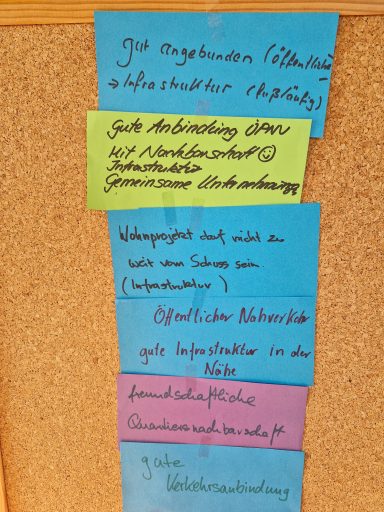 gut angebunden (öffentliche
→ Infrastruktur (fußläufig)
Gute Anbindung ÖPNV
Mit Nachbarschaft ☺
Infrastruktur
Gemeinsame Unternehmungen
Wohnprojekt darf nicht zu
weit vom Schuss sein.
(Infrastruktur)
Öffentlicher Nahverkehr
gute Infrastruktur in der
Nähe
freundschaftliche
Quartiersnachbarschaft
gute
Verkehrsanbindung